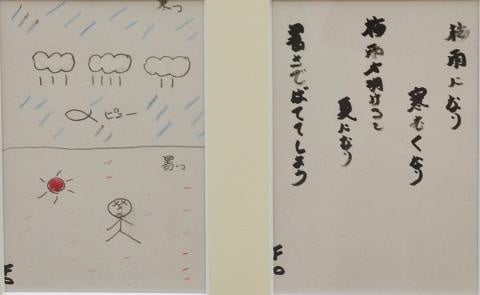 梅雨になり
寒むくなり
梅雨が明けると
夏になり
暑さでばててしまう
寒っ
ピュー
暑っ